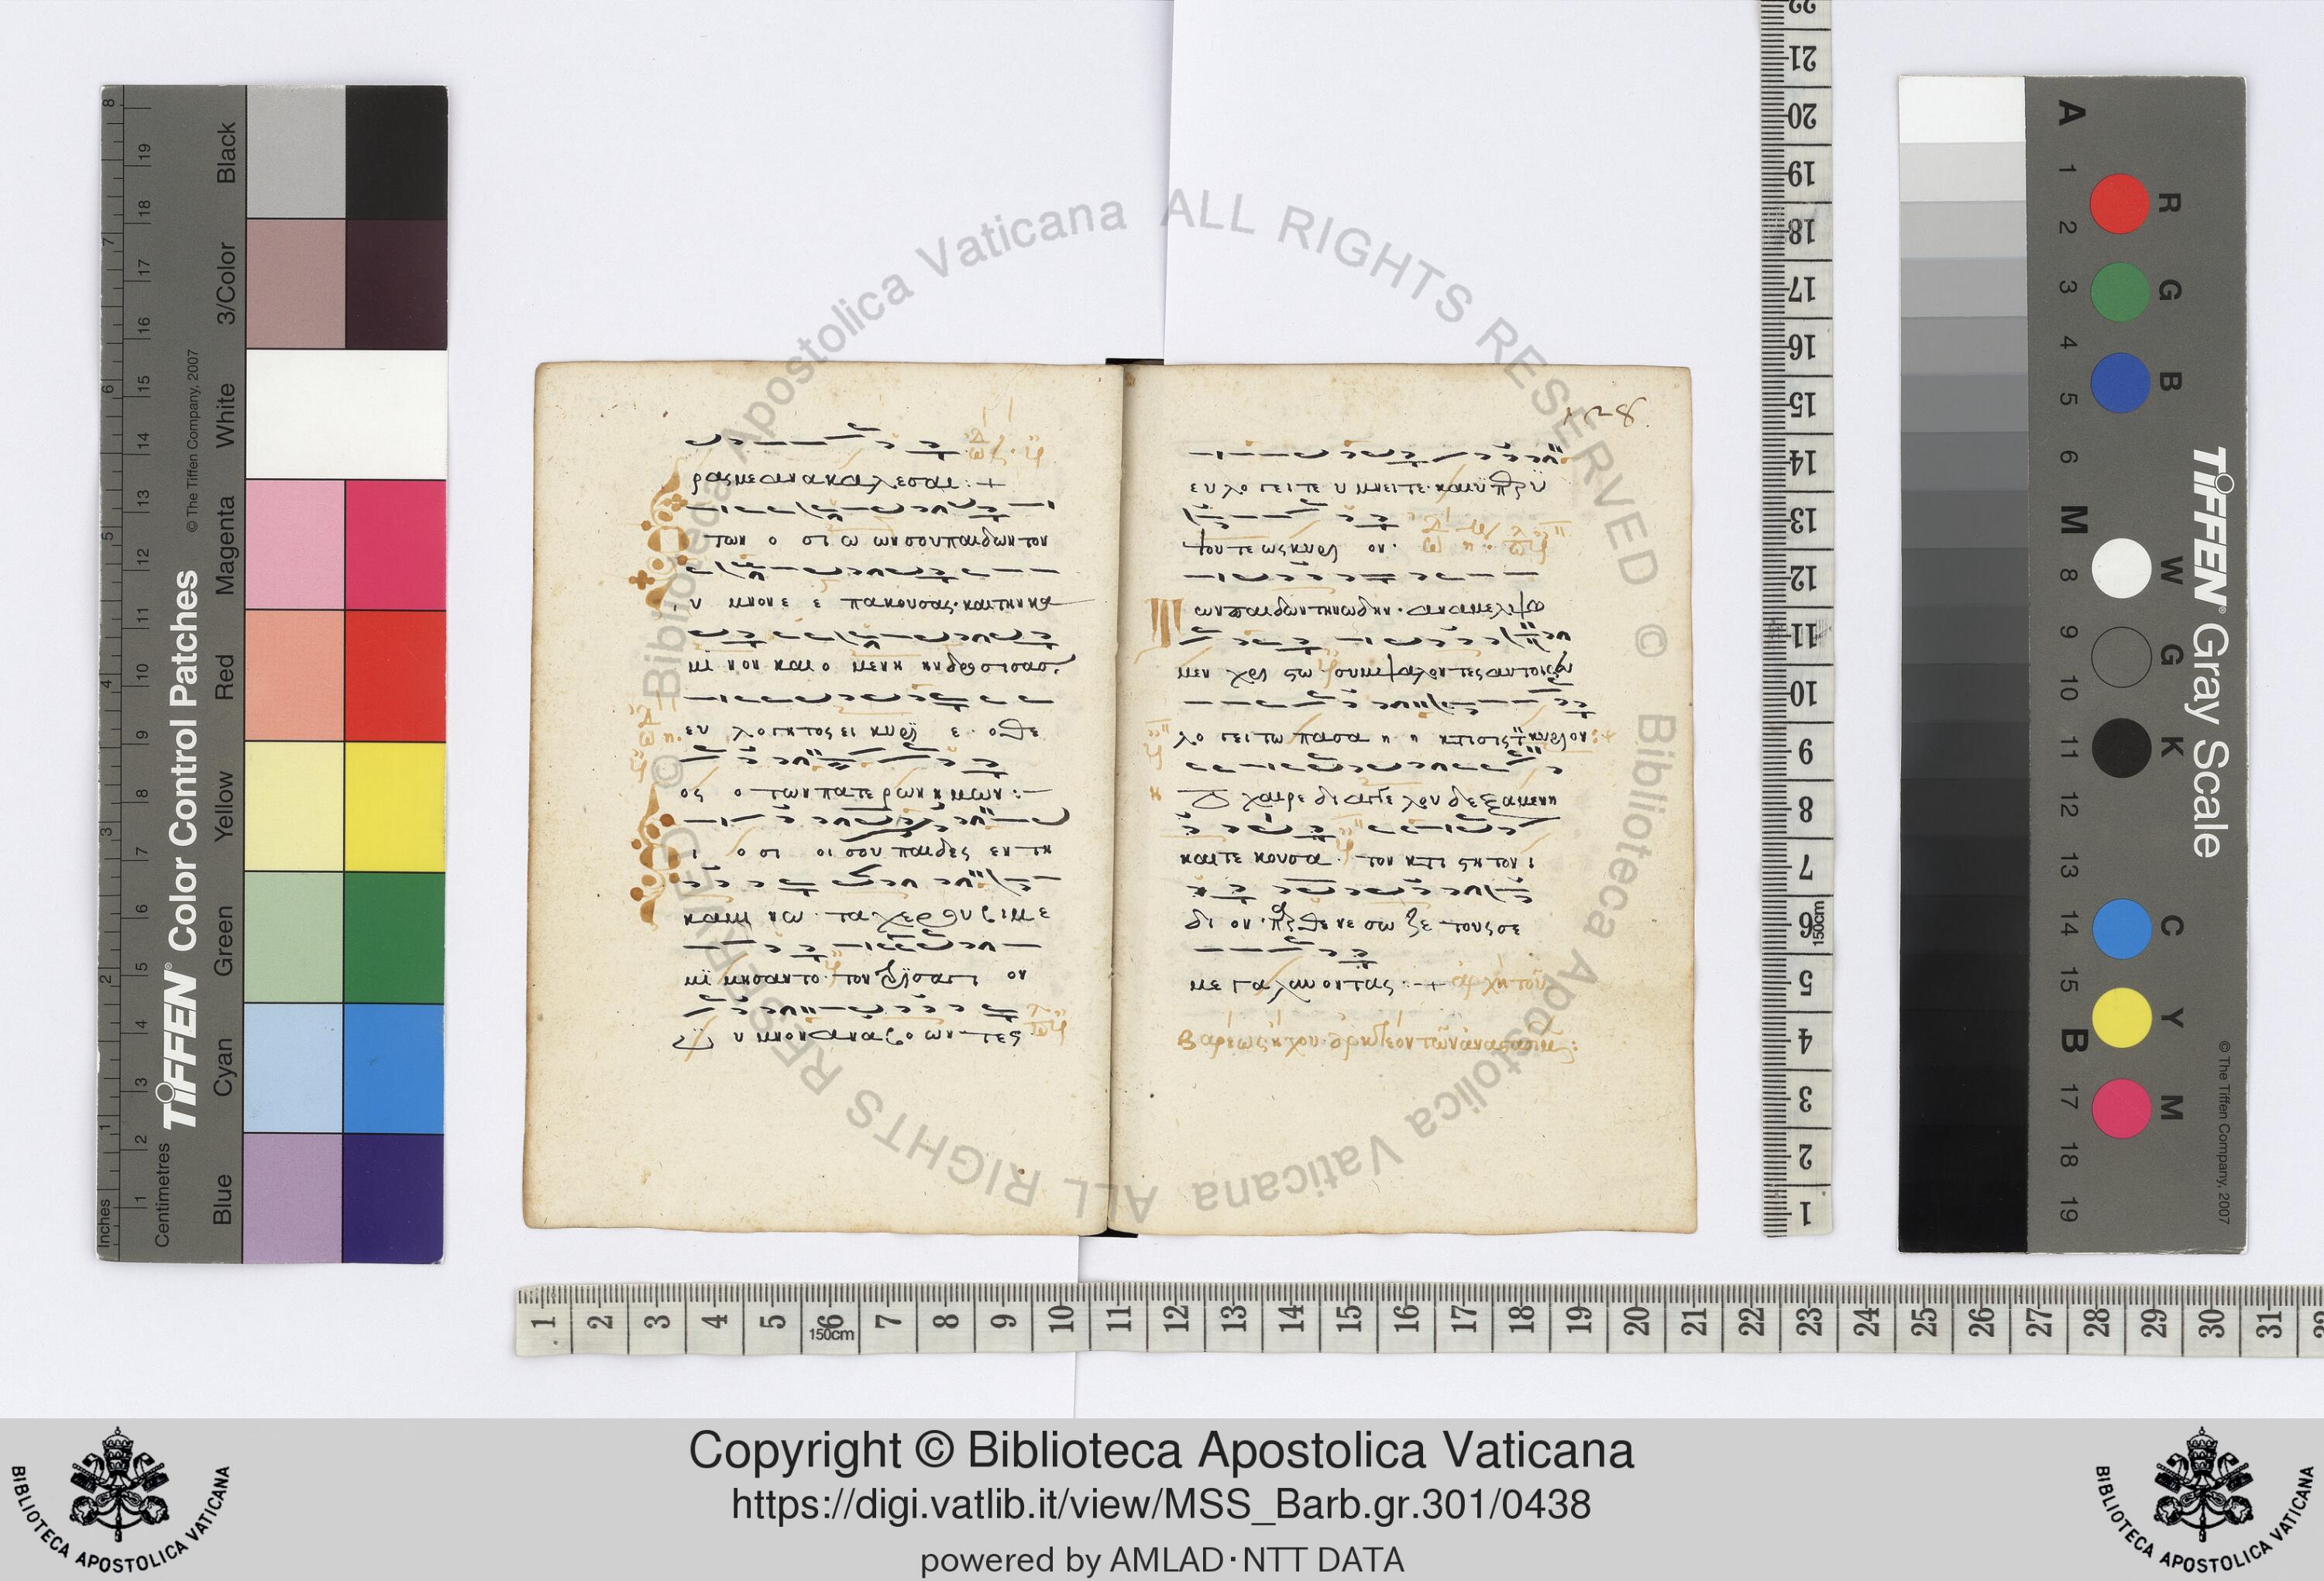 ρας με ανακαλεσαι :+
των ο σι ω ων σου παιδων τον
υ μνον ε ε πακουσας· και την κα
μι νον και ο μενη ην δροσισας·
ευ λο γητος ει κυριε ε· ο θε
ος ο των πατε ρων ημων :-
ι ο σι οι σου παιδες εν τη
καμι νω· τα χερουβιμ ε
μι μησαντο· τον τρισαγι ον
υ μνον αναβο ων τες
ευ λο γειτε υ μνειτε· και υπερυ
ψουτε ως κυρι ον·
ων παιδων την ωδην· αναμελψω
μεν χρι στω συμψαλοντες αυτοις ευ
λο γει τω πασα η η κτισις τον κυριον
χαιρε δι αγγε λου δεξαμενη
και τε κουσα· τον κτι στην τον ι
δι ον· παρθενε σω ζε τους σε
με γα λυν οντας :-+ ἀρχὴ τοῦ
Βαρέως ἤχου·
Copyright © Biblioteca Apostolica Vaticana
https://digi.vatlib.it/view/MSS_Barb.gr.301/0438
powered by AMLAD·NTT DATA
BIBLIOTECA APOSTOLICA VATICANA
BIBLIOTECA APOSTOLICA VATICANA
© Biblioteca Apostolica Vaticana ALL RIGHTS RESERVED
© Biblioteca Apostolica Vaticana ALL RIGHTS RESERVED
TIFFEN® Color Control Patches
© The Tiffen Company, 2007
Blue Cyan Green Yellow Red Magenta White 3/Color Black
Inches
Centimetres
TIFFEN® Gray Scale
© The Tiffen Company, 2007
A 1 2 3 4 5 6 M 8 9 10 11 12 13 14 15 B 17 18 19
R G B W G K C Y M
1 2 3 4 5 6 7 8 9 10 11 12 13 14 15 16 17 18 19 20 21 22 23 24 25 26 27 28 29 30 31
150cm
1 2 3 4 5 6 7 8 9 10 11 12 13 14 15 16 17 18 19 20 21 22
150cm